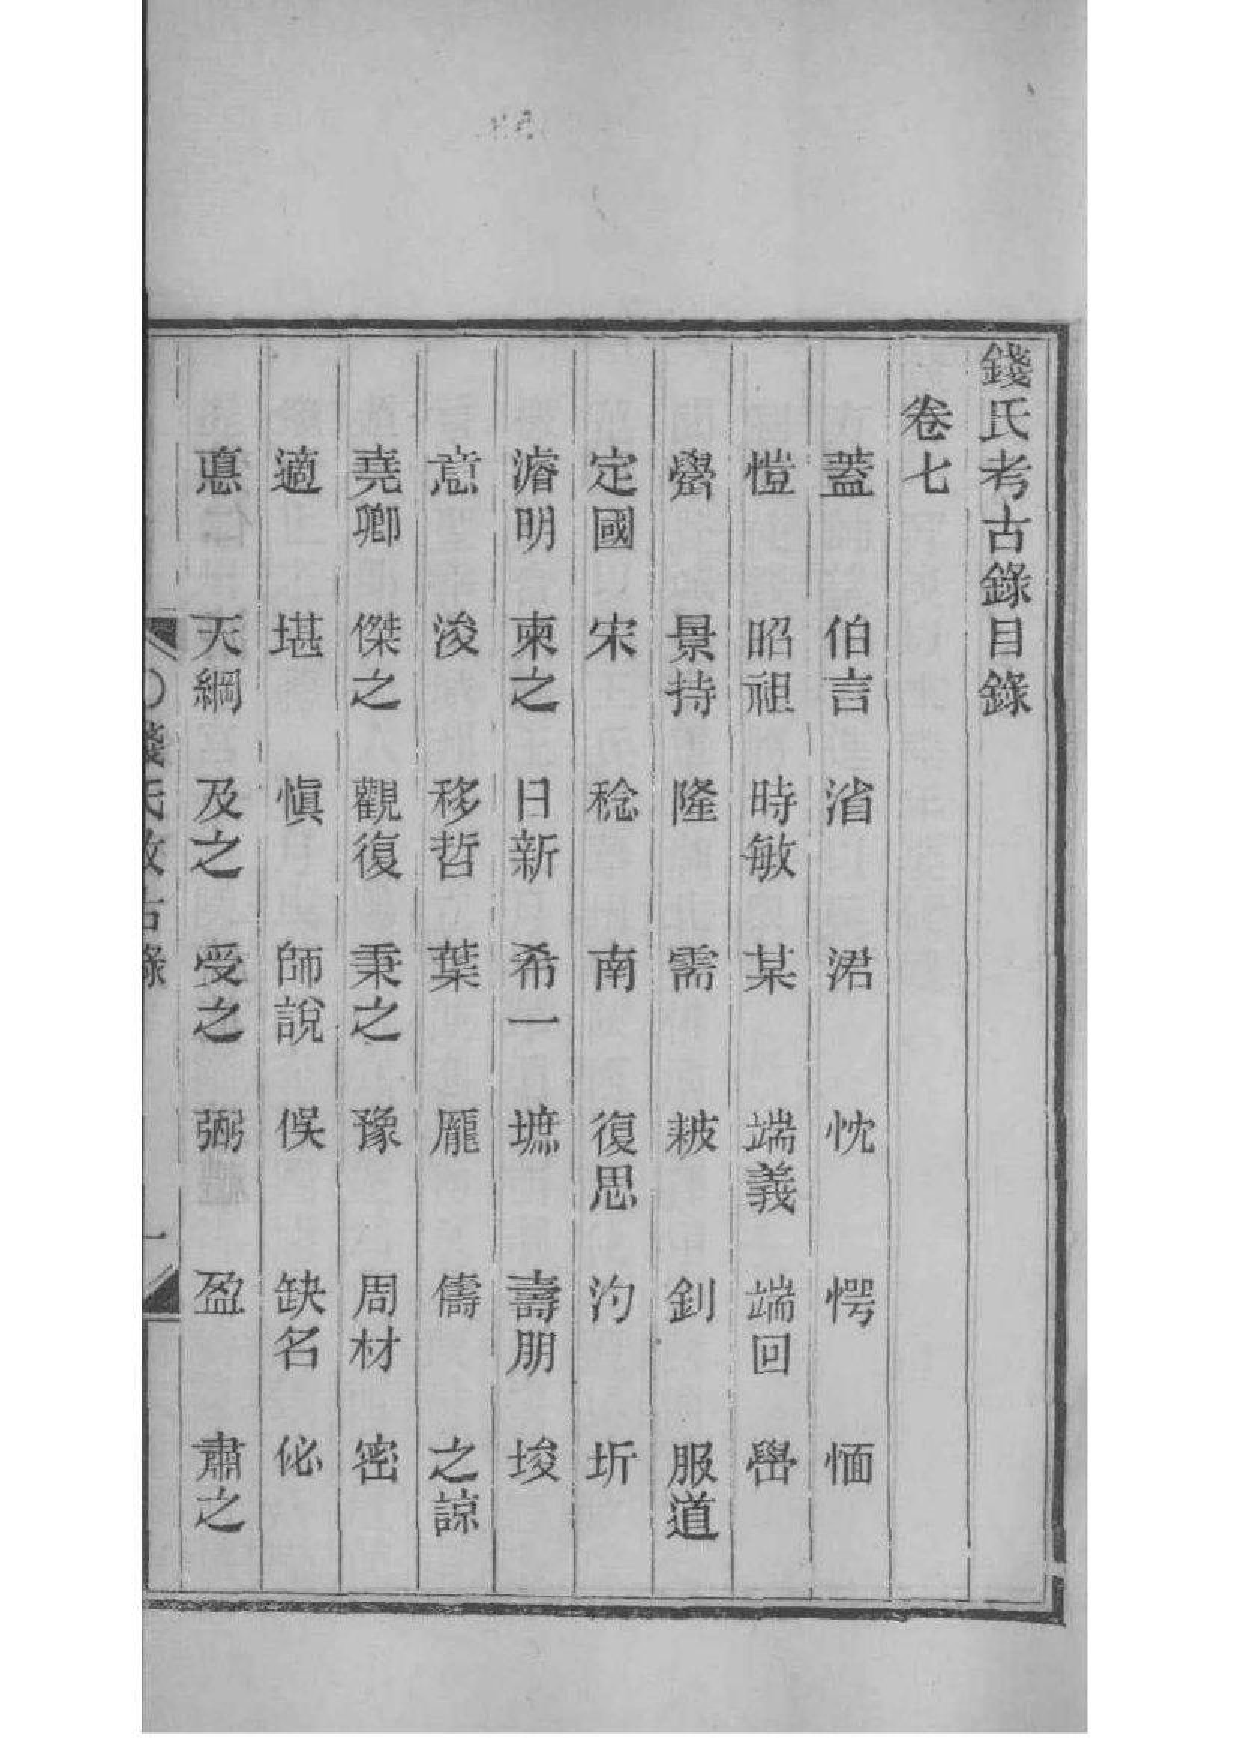 錢氏考古錄目錄
卷七
蓋 伯言 渻 涒 忱 愕 愐
愷 昭祖 時敏 某 端義 端回 嶨
鸒 景持 隆 需 耚 釗 服道
定國 宋 稔 南 復思 汋 圻
濬明 柬之 日新 希一 墌 壽朋 埈
意 浚 移哲 葉 龎 儔 之諒
堯卿 傑之 觀復 秉之 豫 周材 密
適 堪 愼 師說 俁 缺名 佖
悳 天綱 及之 受之 弼 盈 肅之
錢氏攷古錄
一